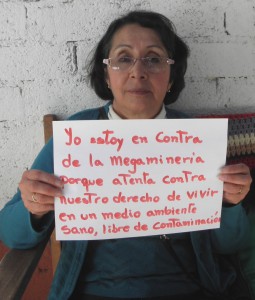 Yo estoy en contra
de la Megaminería
porque atenta contra
nuestro derecho de vivir
en un medio ambiente
sano, libre de contaminación